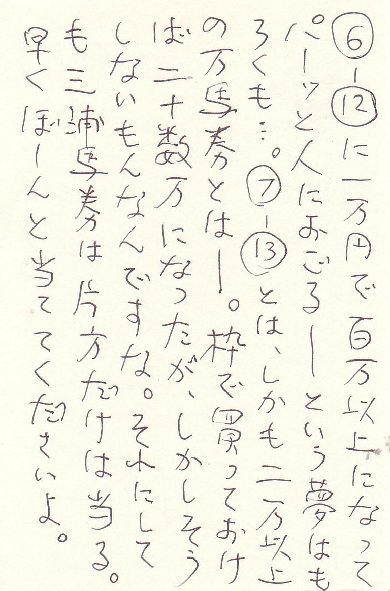 ⑥-⑫に一万円で百万以上になって
パーッと人におごるーという夢はも
ろくも…。⑦-⑬とは、しかも二万以上
の万馬券とはー。枠で買っておけ
ば二十数万になったが、しかしそう
しないもんなんですな。それにして
も三浦馬券は片方だけは当る。
早くぼーんと当ててくださいよ。